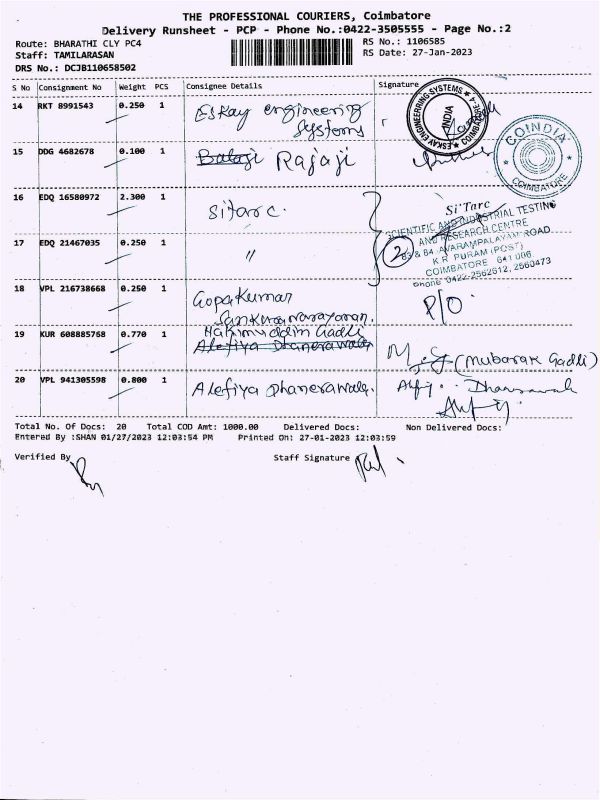 THE PROFESSIONAL COURIERS, Coimbatore
Delivery Runsheet - PCP - Phone No.:0422-3505555 - Page No.:2
Route: BHARATHI CLY PC4
RS No.: 1106585
Staff: TAMILARASAN
RS Date: 27-Jan-2023
DRS No.: DCJB110658502
S No Consignment No Weight PCS Consignee Details Signature
14 RKT 8991543 0.250 1 Eskay engineering
Systems
ESKAY ENGINEERING SYSTEMS
COIMBATORE-4
INDIA
15 DDG 4682678 0.100 1 Balaji Rajaji
COINDIA
COIMBATORE
16 EDQ 16580972 2.300 1 Sitarc.
Si'Tarc
SCIENTIFIC AND INDUSTRIAL TESTING
AND RESEARCH CENTRE
83 & 84 AVARAMPALAYAM ROAD
K.R PURAM (POST)
COIMBATORE 641 006
phone 0422-2562612, 2560473
2
17 EDQ 21467035 0.250 1 "
18 VPL 216738668 0.250 1 Gopakumar
Sankaranarayanan.
P/O.
19 KUR 608885768 0.770 1 Hakimuddin Gadli
Alefiya Dhanerawala
(Mubarak Gadli)
20 VPL 941305598 0.800 1 Alefiya Dhanerawala.
Total No. Of Docs: 20 Total COD Amt: 1000.00 Delivered Docs: Non Delivered Docs:
Entered By :SHAN 01/27/2023 12:03:54 PM Printed On: 27-01-2023 12:03:59
Verified By Staff Signature